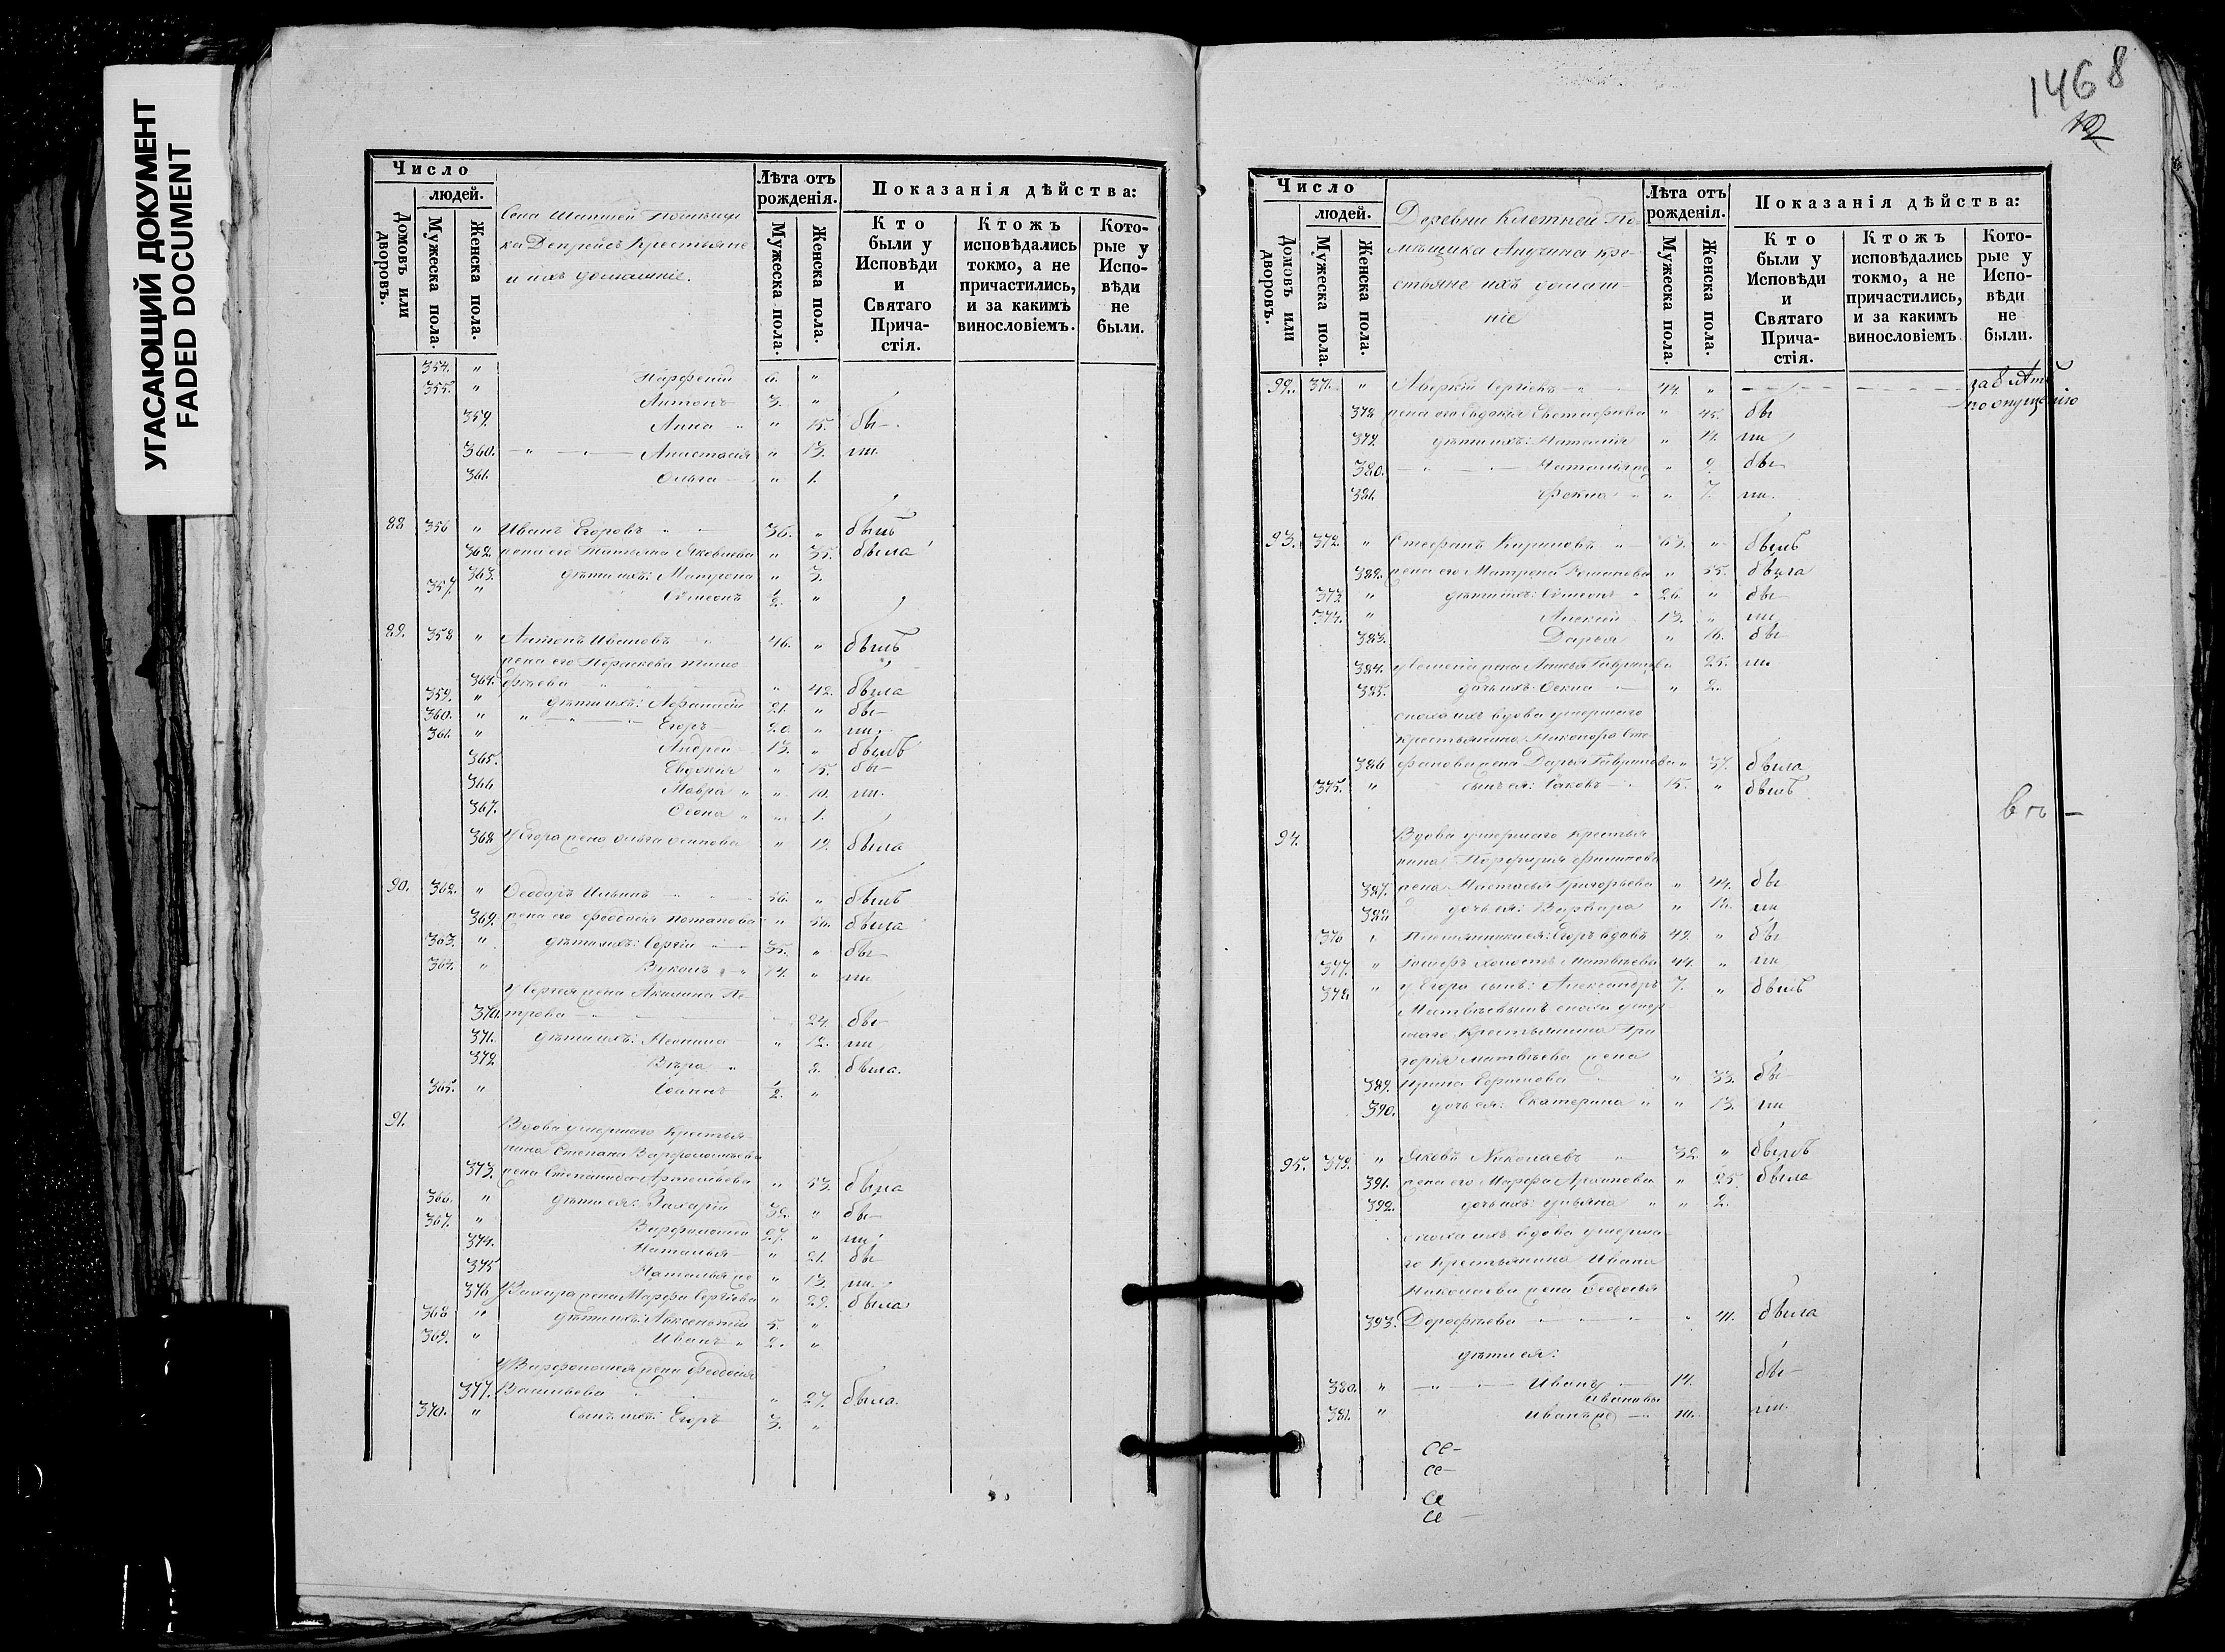 УГАСАЮЩИЙ ДОКУМЕНТ
FADED DOCUMENT
Число
людей.
Домовъ или дворовъ.
Мужеска пола.
Женска пола.
Лѣта отъ рожденія.
Мужеска пола.
Женска пола.
Показанія дѣйства:
Кто были у Исповѣди и Святаго Прича-стія.
Ктожъ исповѣдались токмо, а не причастились, и за какимъ винословіемъ.
Кото-рые у Испо-вѣди не были.
Села
ка Крестьяне
и ихъ домашніе.
354. " Парфеній 6. "
355. " Антонъ 3. "
359. Анна " " 15. бы-
360. Анастасія " 13. ли.
361. Ольга " 1.
88 356 " Иванъ Егоровъ 36. " былъ
362. жена его Татьяна Яковлева " 35. была
363. дѣти ихъ: Матрона " 3.
357. " Симеонъ 1/2. "
89. 358 " Антонъ Ивановъ 46. " былъ
жена его Параскева Тимо
364. фѣева " 42. была
359. " дѣти ихъ: Афанасій 21. " бы-
360. " Егоръ 20. " ли.
361. " Андрей 13. " былъ
365. Евдокія " 15. бы-
366 Мавра " " 10. ли.
367. " 1.
368 У Егора жена Ольга Осипова " 19. была
90. 362. " Ѳеодоръ Ильинъ 56. " былъ
369. жена его Феодосія Потапова " 50. была
363. " дѣти ихъ: Сергій 35. " бы-
364. " Вуколъ 14. " ли
У Сергея жена Акилина Пе
370. трова 24. бы-
371. дѣти ихъ: " 12. ли
372 Вѣра " 8. была.
365. " Іоаннъ 1/2. "
91. Вдова умершаго Крестья-
нина Степана Варфоломѣева
373. жена Степанида Артемьева " 53. была
366. " дѣти ея: Захарій 32. " бы-
367. " Варфоломей 27. " ли
374. Наталья " 21. бы-
375 Наталья же " 13. ли.
376 У Захара жена Марфа Сергіева " 29. была
368 " дѣти ихъ: Авксентій 5. "
369. " Иванъ " 2. "
У Варфоломея жена Феодосія
377. Васильева " 27. была.
370. " сынъ ихъ: Егоръ 3. "
1468
Число
людей.
Домовъ или дворовъ.
Мужеска пола.
Женска пола.
Лѣта отъ рожденія.
Мужеска пола.
Женска пола.
Показанія дѣйства:
Кто были у Исповѣди и Святаго Прича-стія.
Ктожъ исповѣдались токмо, а не причастились, и за какимъ винословіемъ
Кото-рые у Испо-вѣди не были.
Деревни Клетней По
мѣщика кре-
стьяне ихъ домаш-
ніе
92. 371. " Аверкій Сергіевъ 44. "
по опущенію
378 жена его Евдокія Евстафіева " 45. бы
379. дѣти ихъ: Наталія " 14. ли
380. " 9. бы
381. Фекла " 7. ли.
93. 372. " Стефанъ Кириловъ " 63. " былъ
382. жена его Матрона " 55. была
373 " дѣти ихъ: Симеонъ " 26. " бы
374. " Алексій 13. " ли
383. Дарья " 16. бы
384. у Семена жена Гаврилова 25. ли
385. дочь ихъ " 2.
сноха ихъ вдова умершаго
Крестьянина Никонора Сте
386 фанова жена Дарья Гаврилова " 37. была
375. " сынъ ея: Іаковъ 15. " былъ
94. Вдова умершаго крестья
нина Порфирія Филипова
387. жена Настасья Григорьева " 44. бы
388 дочь ея: Варвара " 12. ли
376 " Племянники ея: Егоръ вдовъ 42. " бы
377. " холостъ Матвѣевы 44. " ли
378. " у Егора сынъ: Александръ 7. " былъ
Матвѣевымъ сноха умер
шаго Крестьянина Гри
горія Матвѣева жена
389. Ирина Ефимова " 33. бы-
390. дочь ея: Екатерина " " 13. ли
95. 379. " Яковъ Николаевъ " 32. " былъ
391. жена его Марфа " 25. была
392. дочь ихъ: Ульяна " " 2.
сноха ихъ вдова умерша
го Крестьянина Ивана
Николаева жена
393. Дорофѣева " 41. была
дѣти ея:
380. " Иванъ 14. бы-
Ивановы
381. " Иванъ же 10. ли.